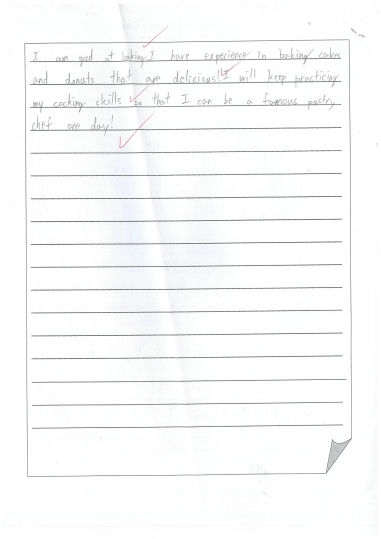 I am good at baking. I have experience in baking cakes
and donuts that are delicious! I will keep practicing
my cooking skills so that I can be a famous pastry
chef one day!